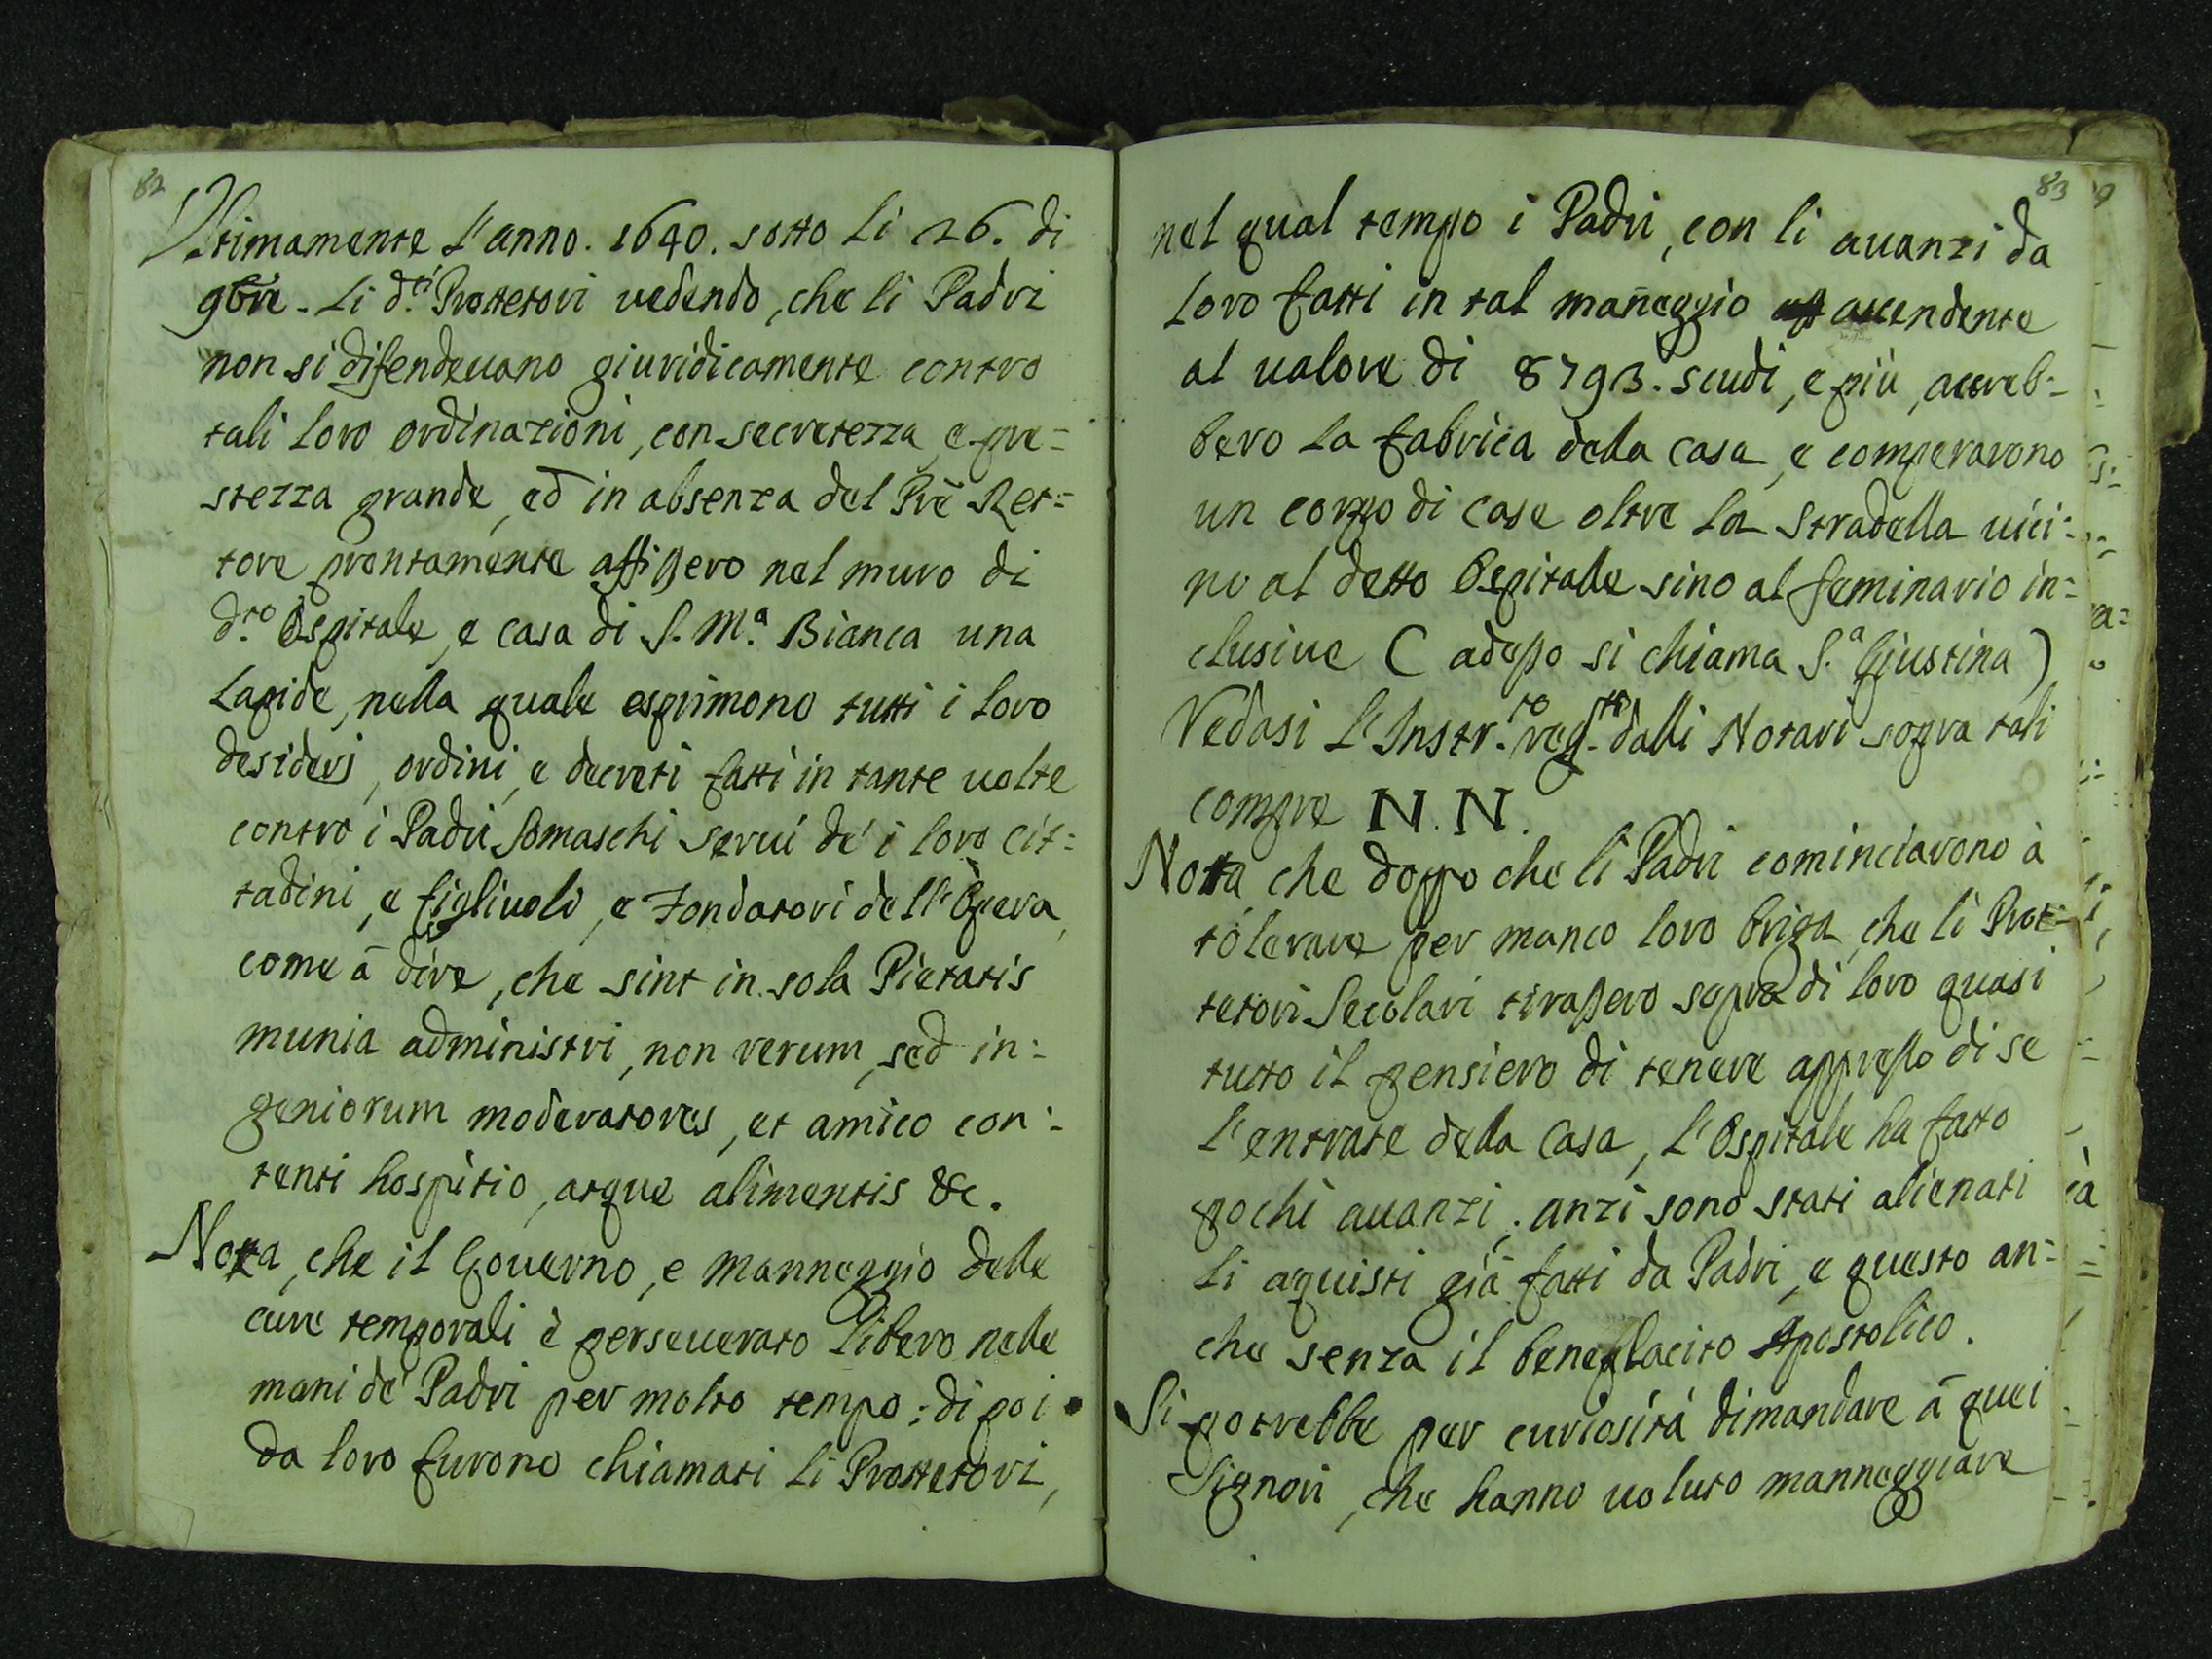 82
Vltimamente l'anno. 1640. sotto li 26. di
9bre. li d.ti Prottetori uedendo, che li Padri
non si difendeuano giuridicamente contro
tali loro ordinazioni, con secretezza, e pre=
stezza grande, ed in absenza del Prē Ret=
tore prontamente affissero nel muro di
d.to Ospitale, e casa di S. M.a Bianca una
lapide, nella quale esprimono tutti i loro
desiderj, ordini, e decreti fatti in tante uolte
contro i Padri Somaschi serui de' i loro cit=
tadini, e figliuoli, e Fondatori dell'Opera,
come à dire, che sint in sola Pietatis
munia administri, non rerum, sed in=
geniorum moderatores, et amico con=
tenti hospitio, atque alimentis &c.
Nota, che il Gouerno, e manneggio delle
cure temporali è perseuerato libero nelle
mani de' Padri per molto tempo; di poi
da loro furono chiamati li Prottetori,
83
nel qual tempo i Padri, con li auanzi da
loro fatti in tal mañeggio ascendente
al ualore di 8793. scudi, e più, accreb=
bero la fabrica della casa, e comperarono
un corpo di case oltre la stradella uici=
no al detto Ospitale sino al Seminario in=
clusiue (adesso si chiama S.a Giustina)
Vedasi l'Instr.to reg.to dalli Notari sopra tali
compre N. N.
Nota, che doppo che li Padri cominciarono à
tolerare per manco loro briga, che li Prot=
tetori Secolari tirassero sopra di loro quasi
tutto il pensiero di tenere appresso di se
l'entrate della Casa, l'Ospitale ha fatto
pochi auanzi; anzi sono stati alienati
li aquisti già fatti da Padri, e questo an=
che senza il beneplacito Apostolico.
Si potrebbe per curiosità dimandare à quei
Signori, che hanno uoluto manneggiare